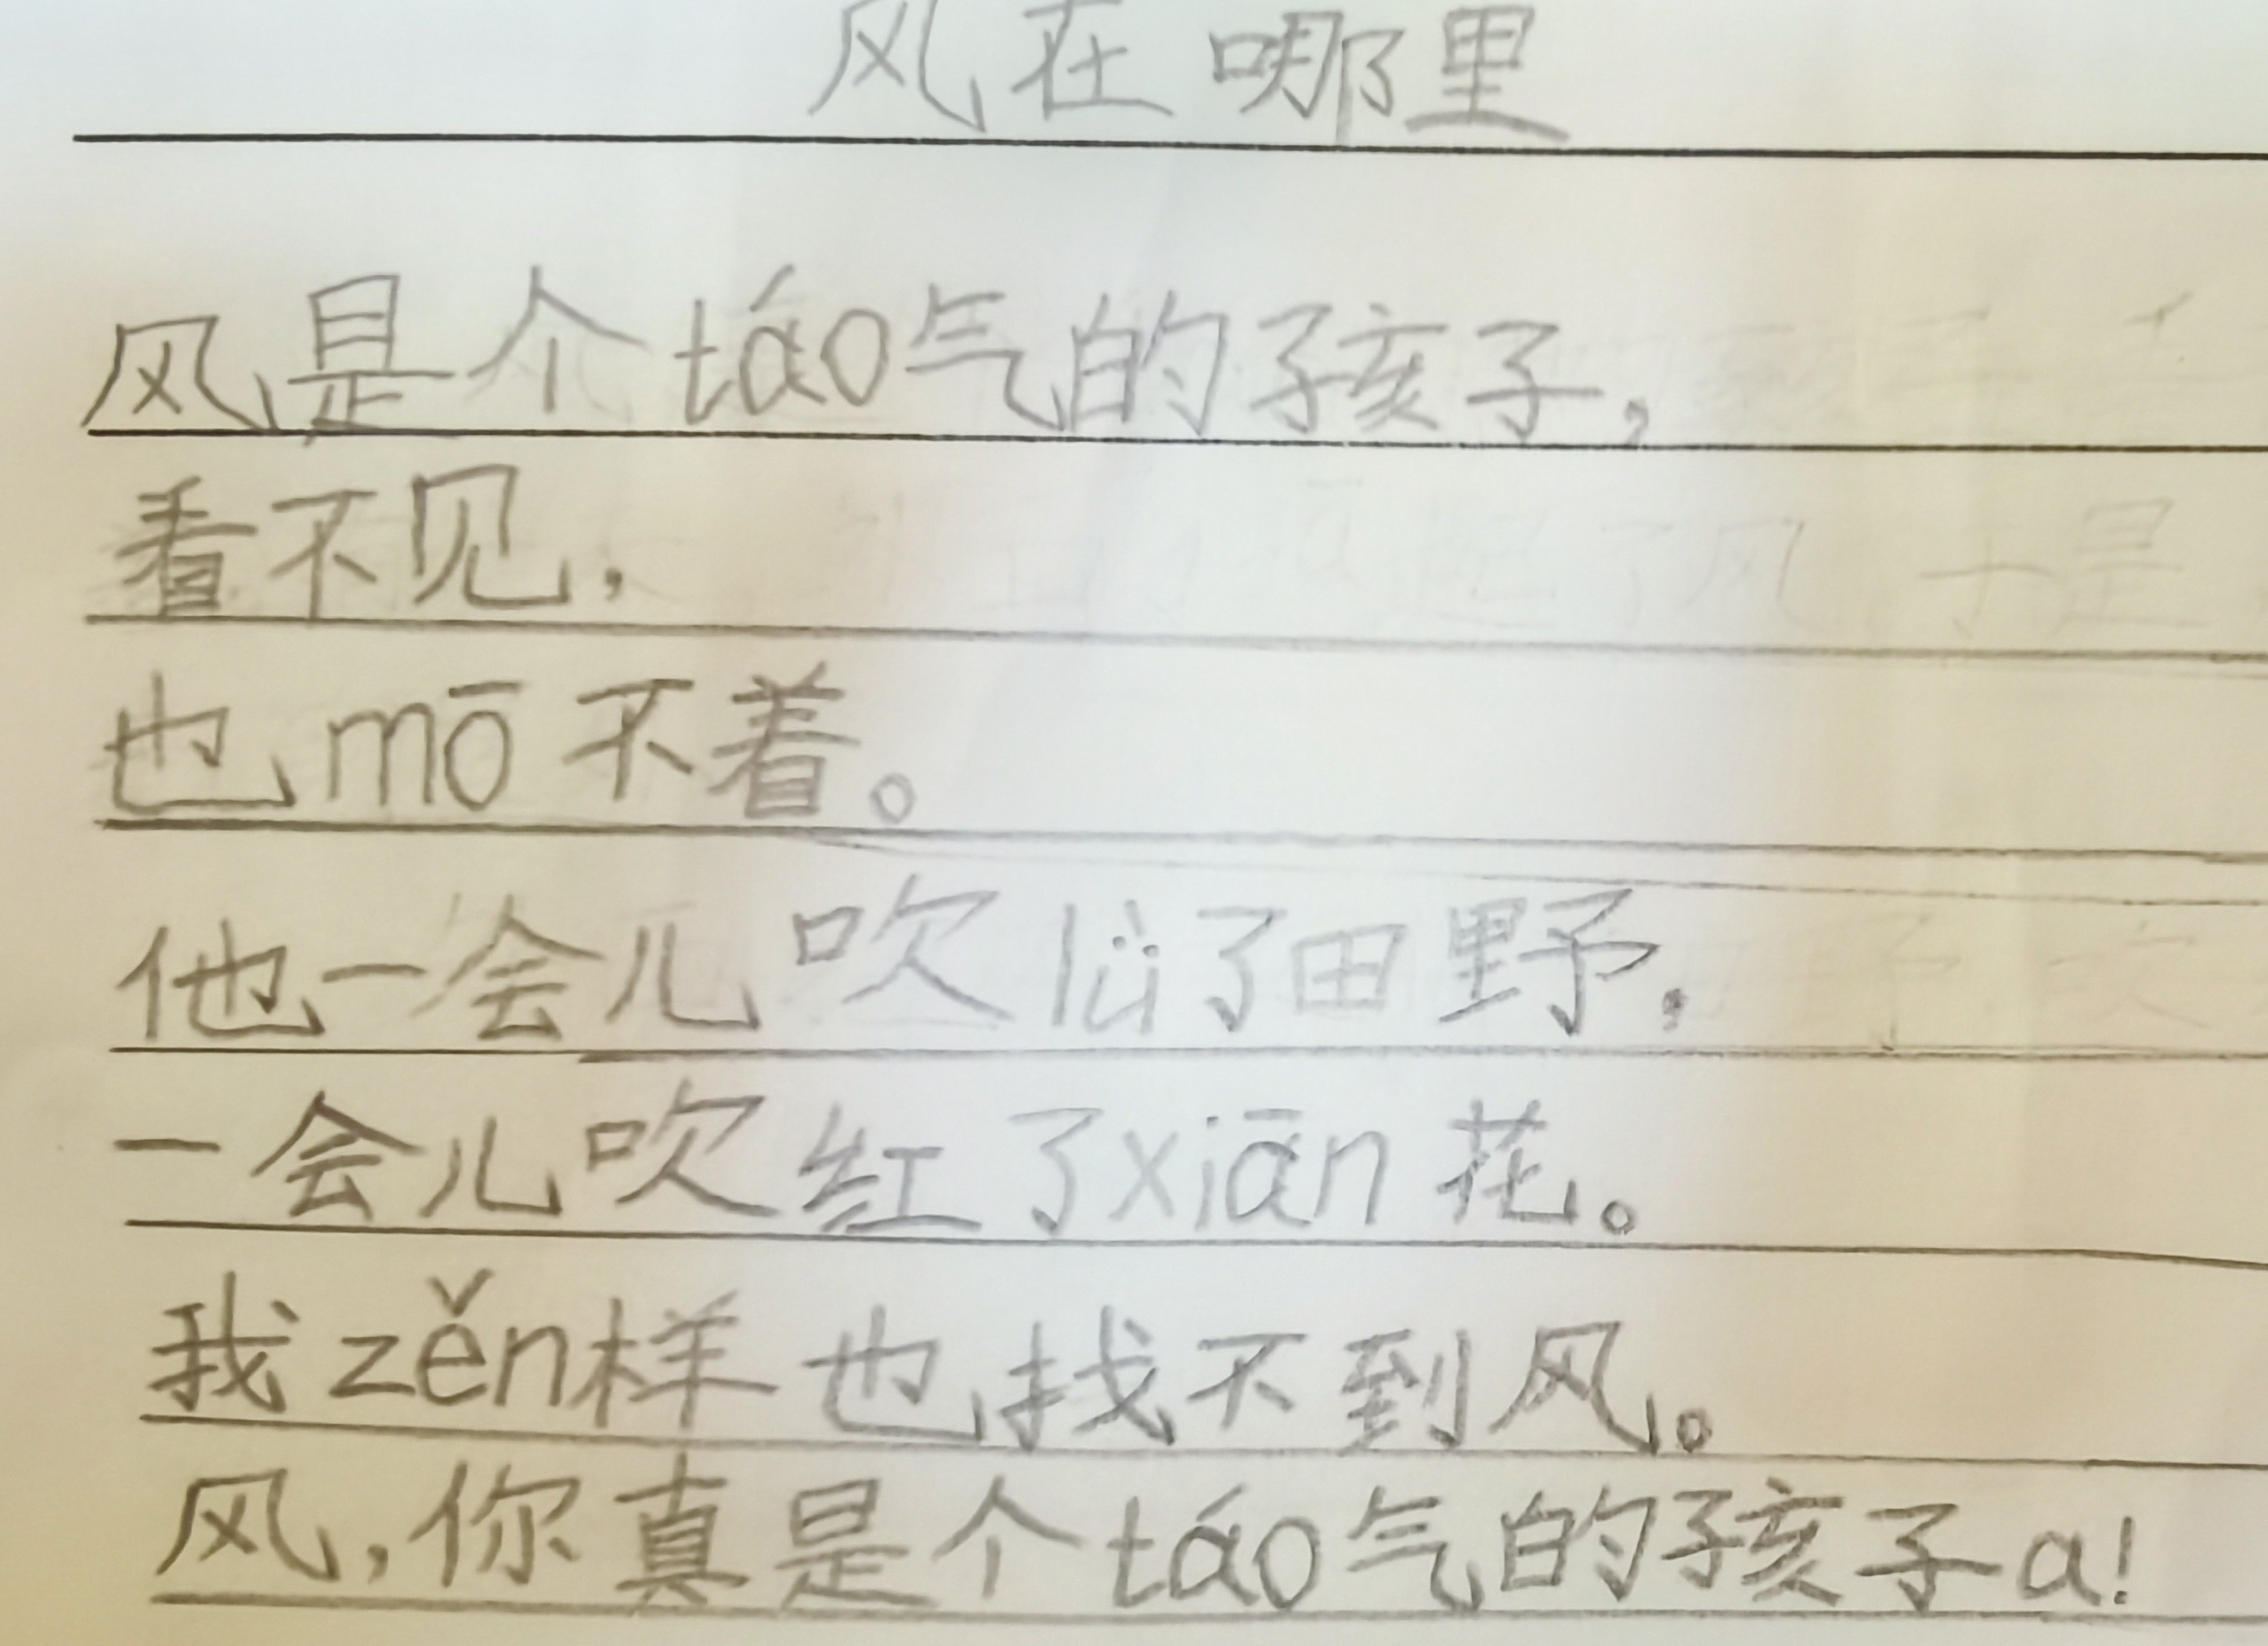 风在哪里
风是个táo气的孩子，
看不见，
也mō不着。
他一会儿吹lǜ了田野，
一会儿吹红了xiān花。
我zěn样也找不到风。
风，你真是个táo气的孩子a！